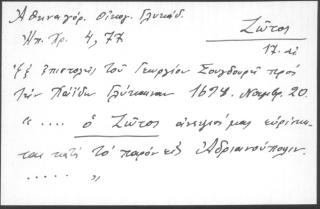 Ἀθηναγόρ. Οἰκογ. Γλυκάδ.
Ἠπ. Χρ. 4, 77
Ζῶτος
17. αἰ
Ἐξ ἐπιστολῆς τοῦ Γεωργίου Σουγδουρῆ πρός
τὸν Παΐδη Γλύκυναν 1694. Νοεμβρ. 20.
«.... ὁ Ζῶτος ἀνεψιός μας εὑρίσκε-
ται κατὰ τὸ παρὸν εἰς Ἀδριανούπολιν.
..... »